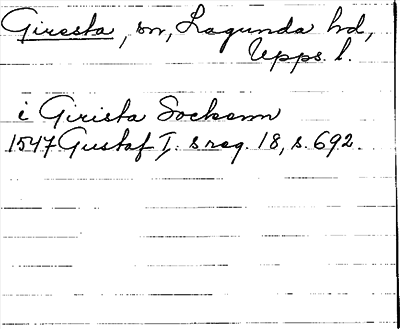 Giresta, sn, Lagunda hd,
Upps. l.
i Girista Sockenn
1547 Gustaf I. s reg. 18, s. 692.